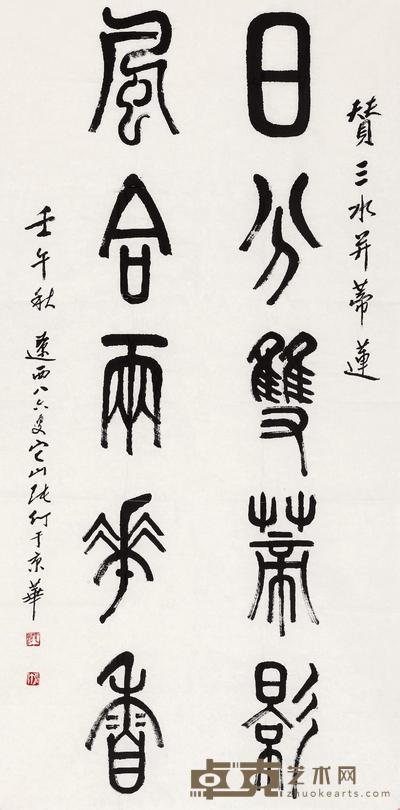 贊三水并蒂蓮
日分雙蒂影
風合兩花香
壬午秋 遼西八六叟它山張仃于京華
卓克艺术网
zhuokearts.com